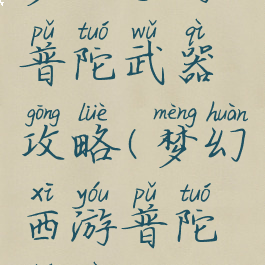 pǔ tuó wǔ qì
普陀武器
gōng lüè mèng huàn
攻略(梦幻
xī yóu pǔ tuó
西游普陀